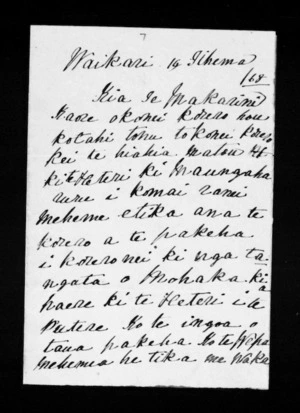 7
Waikari 19 Tihema
/68
Kia Te Makarini
Kaore o konei korero hou
kotahi tonu to konei korero
kei te hiahia matou
ki Hateri ki Maungaha
ruru i komai rami
Mehemea etika ana te
korero a te pakeha
i korero nei ki nga ta
ngata o Mohaka kia
haere ki te Heteri i te
Putere Ko te ingoa o
taua pakeha Ko te
mehemea he tika me Waka